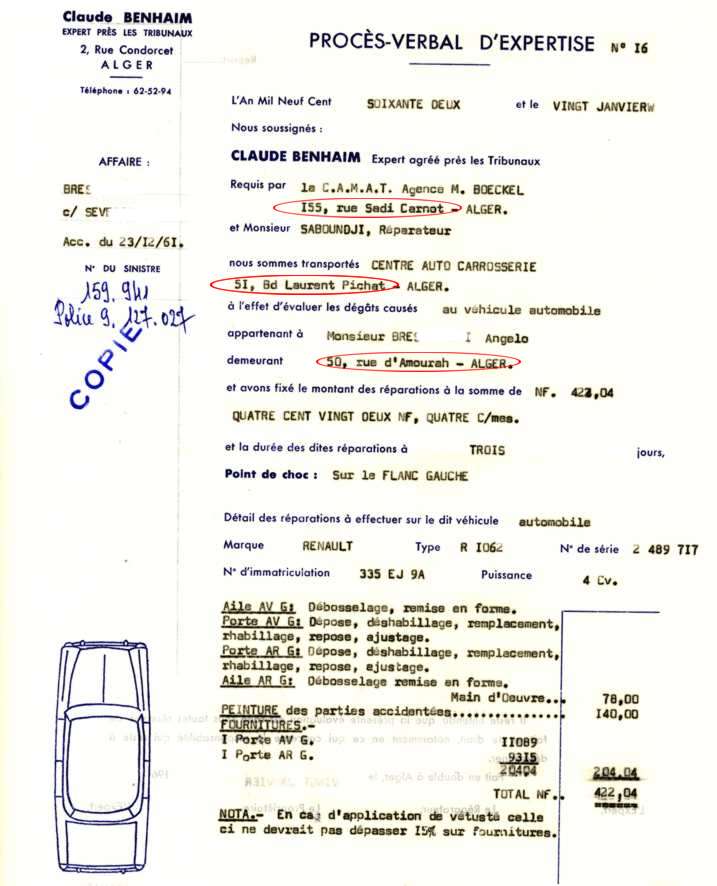 Claude BENHAIM
EXPERT PRÈS LES TRIBUNAUX
2, Rue Condorcet
ALGER
Téléphone : 62-52-94
PROCÈS-VERBAL D'EXPERTISE N° I6
L'An Mil Neuf Cent SOIXANTE DEUX et le VINGT JANVIERW
Nous soussignés :
AFFAIRE :
CLAUDE BENHAIM Expert agréé près les Tribunaux
BRES
Requis par la C.A.M.A.T. Agence M. BOECKEL
c/ SEVE
I55, rue Sadi Carnot - ALGER.
Acc. du 23/I2/6I.
et Monsieur SABOUNDJI, Réparateur
N° DU SINISTRE
nous sommes transportés CENTRE AUTO CARROSSERIE
159.941
5I, Bd Laurent Pichat - ALGER.
Police 9. 127.027
à l'effet d'évaluer les dégâts causés au véhicule automobile
COPIE
appartenant à Monsieur BRES I Angelo
demeurant 50, rue d'Amourah - ALGER.
et avons fixé le montant des réparations à la somme de NF. 422,04
QUATRE CENT VINGT DEUX NF, QUATRE C/mes.
et la durée des dites réparations à TROIS jours,
Point de choc : Sur le FLANC GAUCHE
Détail des réparations à effectuer sur le dit véhicule automobile
Marque RENAULT Type R I062 N° de série 2 489 7I7
N° d'immatriculation 335 EJ 9A Puissance 4 Cv.
Aile AV G: Débosselage, remise en forme.
Porte AV G: Dépose, déshabillage, remplacement,
rhabillage, repose, ajustage.
Porte AR G: Dépose, déshabillage, remplacement,
rhabillage, repose, ajustage.
Aile AR G: Débosselage remise en forme.
Main d'Oeuvre... 78,00
PEINTURE des parties accidentées............... I40,00
FOURNITURES.-
I Porte AV G. II089
I Porte AR G. 93I5
20404 204.04
TOTAL NF.. 422,04
NOTA.- En cas d'application de vétusté celle
ci ne devrait pas dépasser I5% sur fournitures.